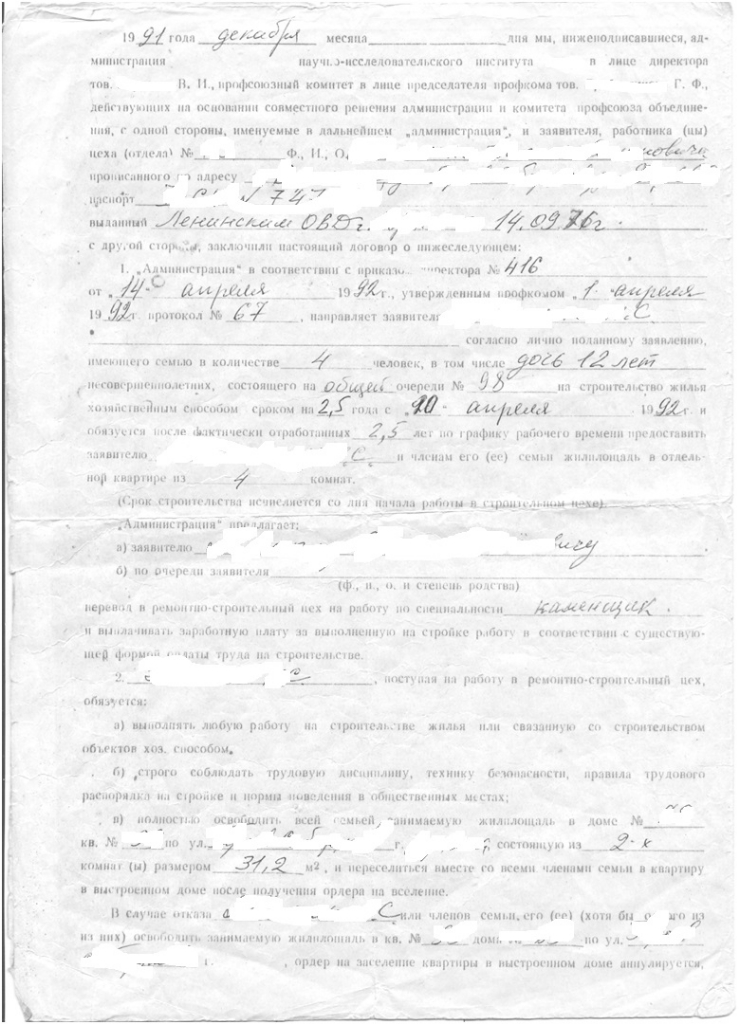 1991 года декабря месяца дня мы, нижеподписавшиеся, ад-
министрация научно-исследовательского института в лице директора
тов. В. И., профсоюзный комитет в лице председателя профкома тов. Г. Ф.,
действующих на основании совместного решения администрации и комитета профсоюза объедине-
ния, с одной стороны, именуемые в дальнейшем „администрация", и заявителя, работника (цы)
цеха (отдела) № Ф., И., О, овича
прописанного по адресу
паспорт 747
выданный Ленинским ОВД г. 14.09.76г
с другой стороны, заключили настоящий договор о нижеследующем:
1. „Администрация" в соответствии с приказом директора № 416
от „14" апреля 1992 г., утвержденным профкомом „1" апреля
1992 г. протокол № 67, направляет заявителя С
согласно лично поданному заявлению,
имеющего семью в количестве 4 человек, в том числе дочь 12 лет
несовершеннолетних, состоящего на общей очереди № 98 на строительство жилья
хозяйственным способом сроком на 2,5 года с „20" апреля 1992 г. и
обязуется после фактически отработанных 2,5 лет по графику рабочего времени предоставить
заявителю С. и членам его (ее) семьи жилплощадь в отдель-
ной квартире из 4 комнат.
(Срок строительства исчисляется со дня начала работы в строительном цехе).
„Администрация" предлагает:
а) заявителю вичу
б) по очереди заявителя
(ф., и., о. и степень родства)
перевод в ремонтно-строительный цех на работу по специальности каменщик.
и выплачивать заработную плату за выполненную на стройке работу в соответствии с существую-
щей формой оплаты труда на строительстве.
2. , поступая на работу в ремонтно-строительный цех,
обязуется:
а) выполнять любую работу на строительстве жилья или связанную со строительством
объектов хоз. способом.
б) строго соблюдать трудовую дисциплину, технику безопасности, правила трудового
распорядка на стройке и нормы поведения в общественных местах;
в) полностью освободить всей семьей, занимаемую жилплощадь в доме №
кв. № по ул. г. состоящую из 2-х
комнат (ы) размером 31,2 м², и переселиться вместе со всеми членами семьи в квартиру
в выстроенном доме после получения ордера на вселение.
В случае отказа С или членов семьи, его (ее) (хотя бы одного из
из них) освободить занимаемую жилплощадь в кв. № дома по ул.
г. , ордер на заселение квартиры в выстроенном доме аннулируется,